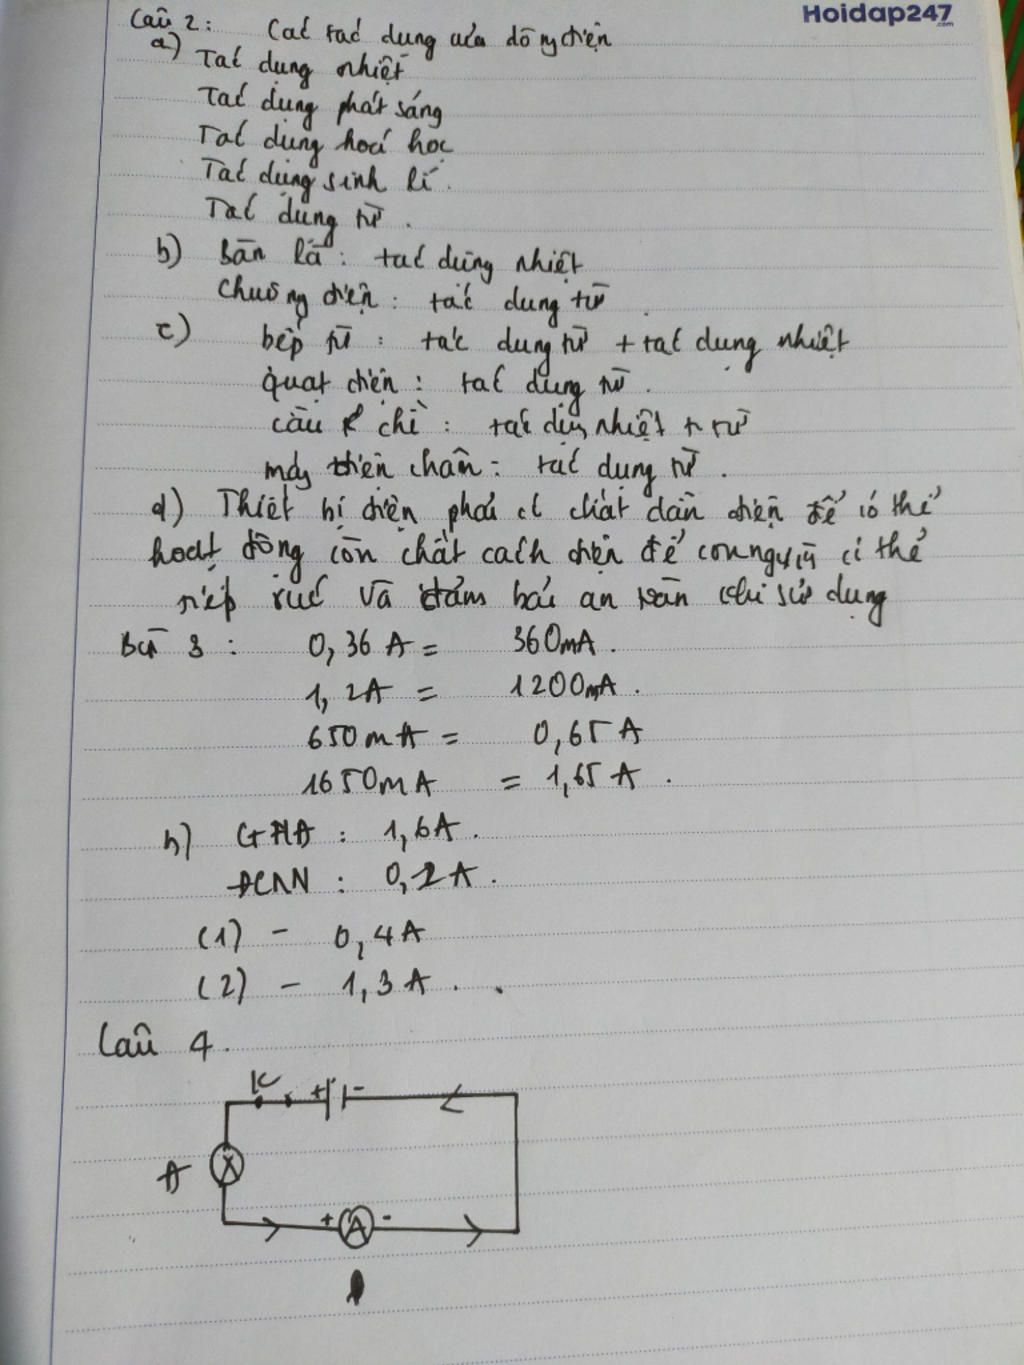 Hoidap247
.com
Câu 2: Các tác dụng của dòng điện
a) Tác dụng nhiệt
Tác dụng phát sáng
Tác dụng hoá học
Tác dụng sinh lí.
Tác dụng từ.
b) Bàn là: tác dụng nhiệt
Chuông điện: tác dụng từ.
c) bếp từ: tác dụng từ + tác dụng nhiệt
quạt điện: tác dụng từ.
cầu chì: tác dụng nhiệt + từ
máy điện chân: tác dụng từ.
d) Thiết bị điện phải có chất dẫn điện để có thể
hoạt động còn chất cách điện để con người có thể
tiếp xúc và đảm bảo an toàn khi sử dụng
Bài 3: 0,36 A = 360mA.
1,2A = 1200mA.
650mA = 0,65A
1650mA = 1,65A.
b) GHĐ: 1,6A.
ĐCNN: 0,2A.
(1) - 0,4A
(2) - 1,3A..
Câu 4.
K + -
Đ
+ A -